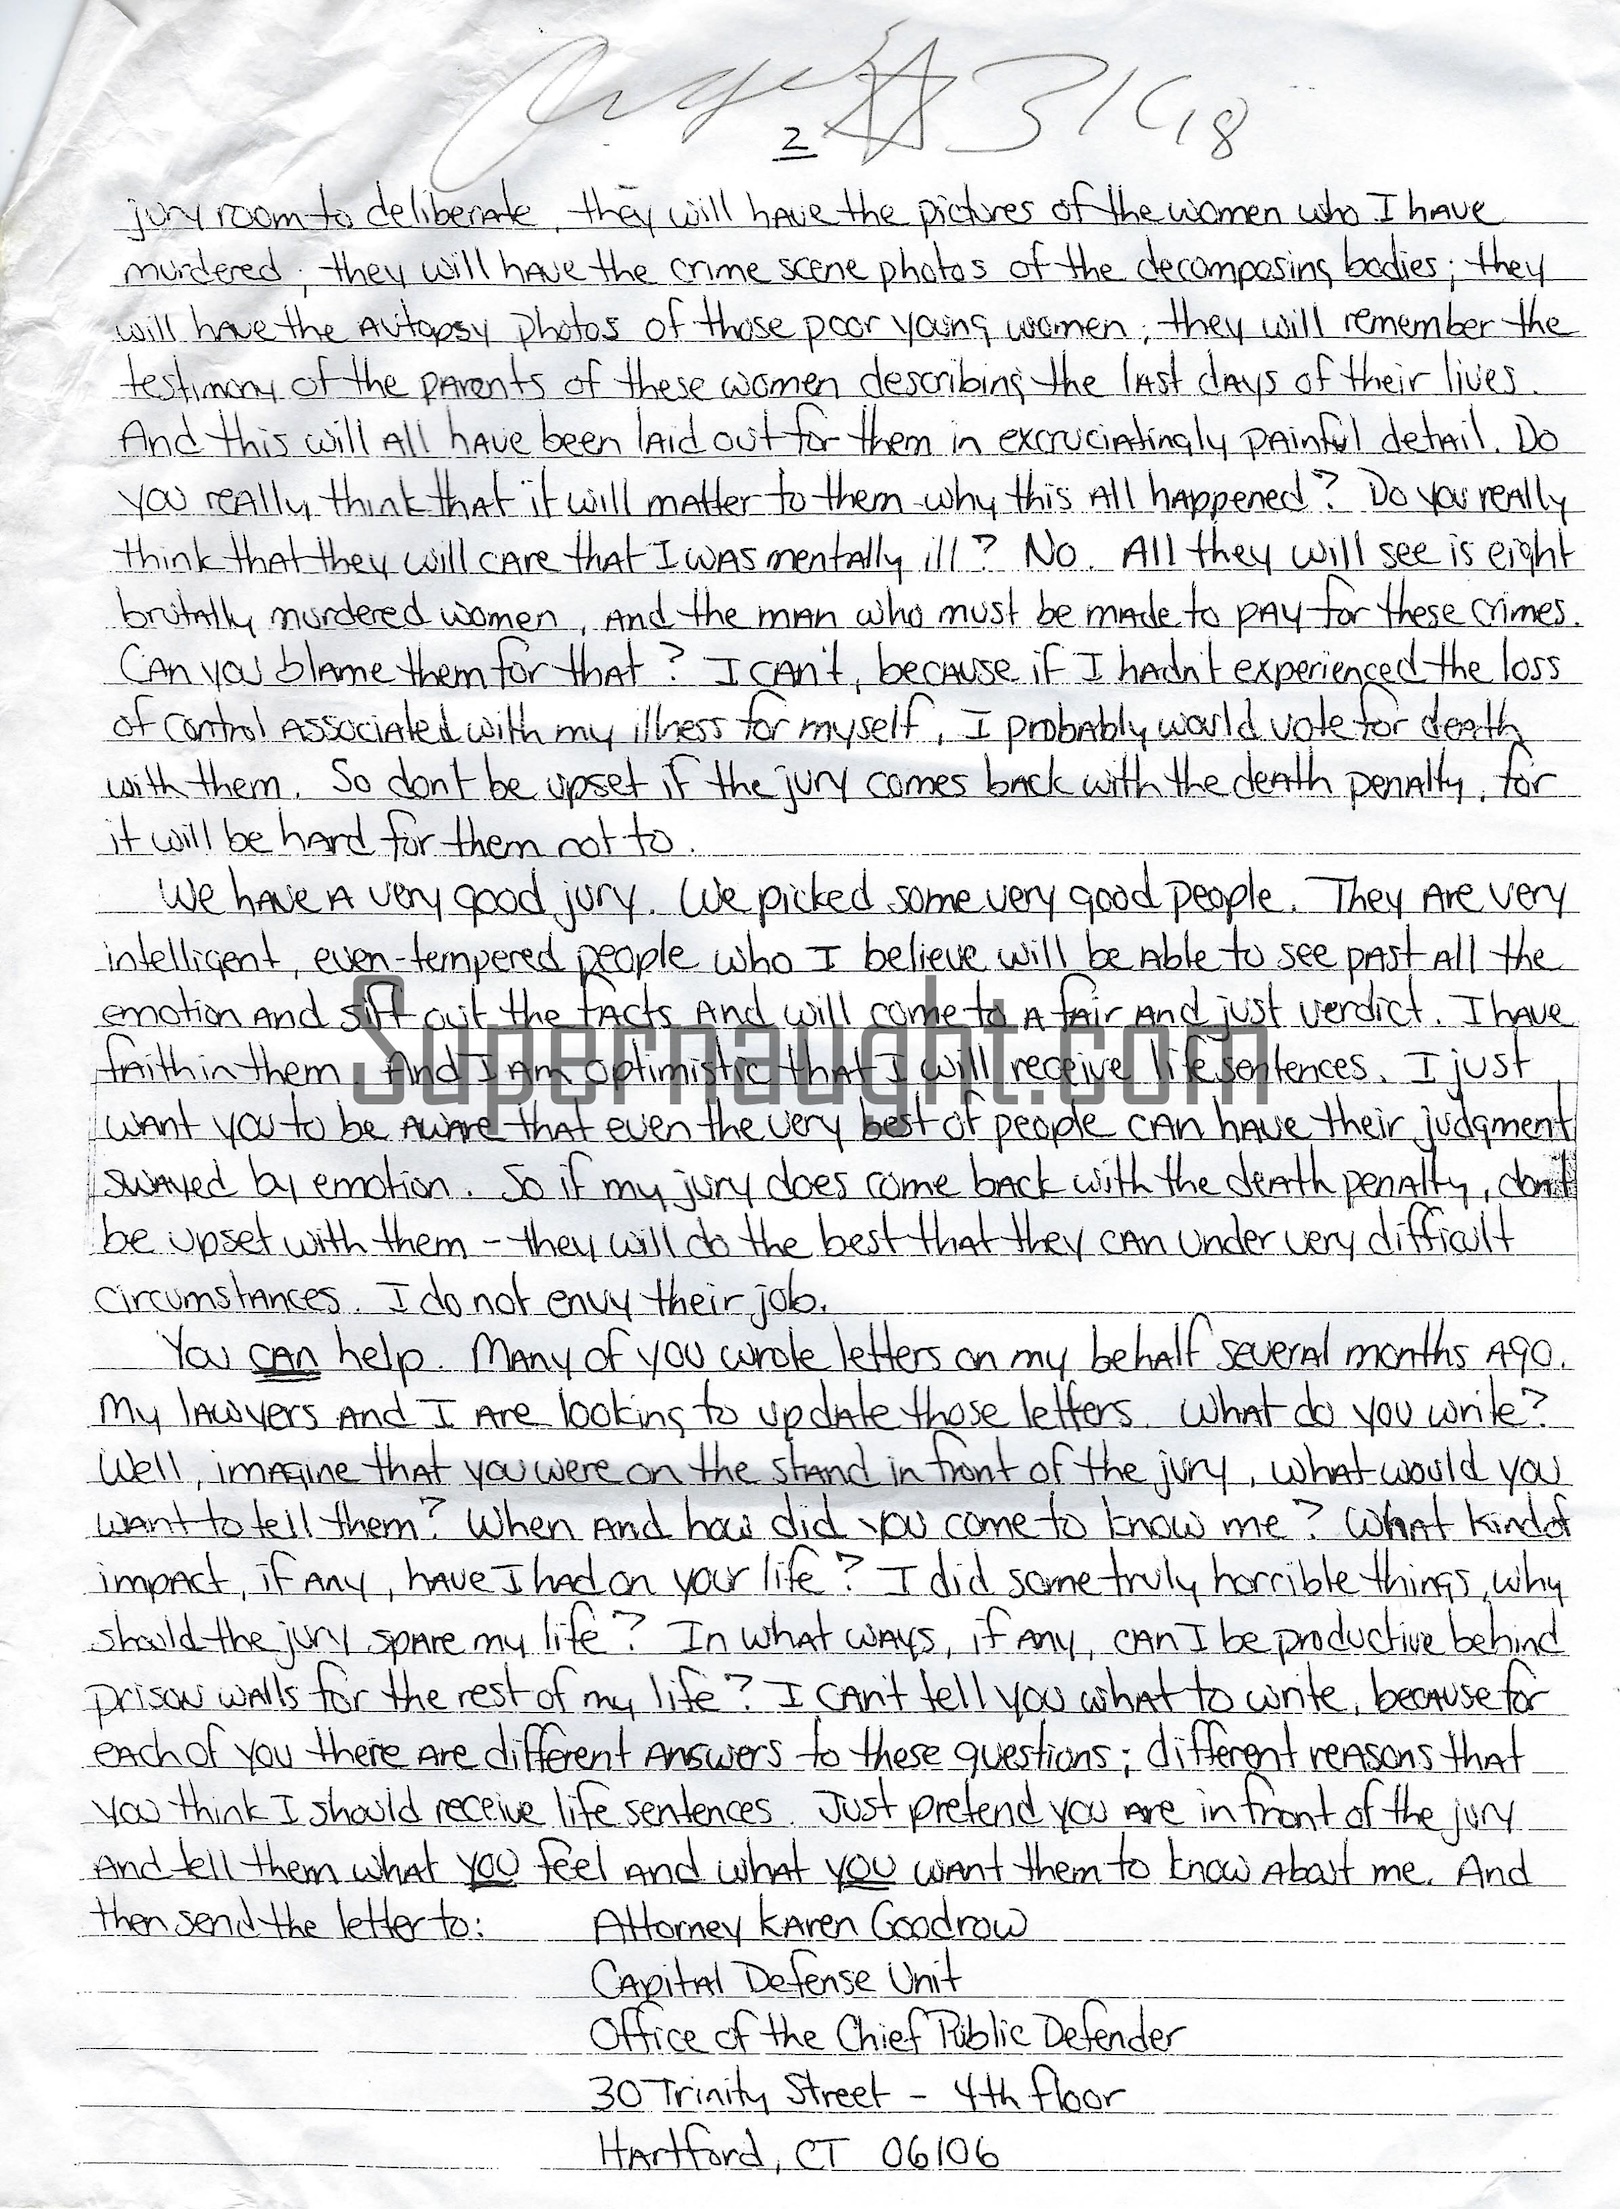 2
jury room to deliberate, they will have the pictures of the women who I have
murdered; they will have the crime scene photos of the decomposing bodies; they
will have the autopsy photos of those poor young women; they will remember the
testimony of the parents of these women describing the last days of their lives.
And this will all have been laid out for them in excruciatingly painful detail. Do
you really think that it will matter to them why this all happened? Do you really
think that they will care that I was mentally ill? No. All they will see is eight
brutally murdered women, and the man who must be made to pay for these crimes.
Can you blame them for that? I can't, because if I hadn't experienced the loss
of control associated with my illness for myself, I probably would vote for death
with them. So don't be upset if the jury comes back with the death penalty, for
it will be hard for them not to.
We have a very good jury. We picked some very good people. They are very
intelligent, even-tempered people who I believe will be able to see past all the
emotion and sift out the facts and will come to a fair and just verdict. I have
faith in them. And I am optimistic that I will receive life sentences. I just
Supernaught.com
want you to be aware that even the very best of people can have their judgment
swayed by emotion. So if my jury does come back with the death penalty, don't
be upset with them - they will do the best that they can under very difficult
circumstances. I do not envy their job.
You can help. Many of you wrote letters on my behalf several months ago.
My lawyers and I are looking to update those letters. What do you write?
Well, imagine that you were on the stand in front of the jury, what would you
want to tell them? When and how did you come to know me? What kind of
impact, if any, have I had on your life? I did some truly horrible things, why
should the jury spare my life? In what ways, if any, can I be productive behind
prison walls for the rest of my life? I can't tell you what to write, because for
each of you there are different answers to these questions; different reasons that
you think I should receive life sentences. Just pretend you are in front of the jury
and tell them what you feel and what you want them to know about me. And
then send the letter to: Attorney Karen Goodrow
Capital Defense Unit
Office of the Chief Public Defender
30 Trinity Street - 4th floor
Hartford, CT 06106